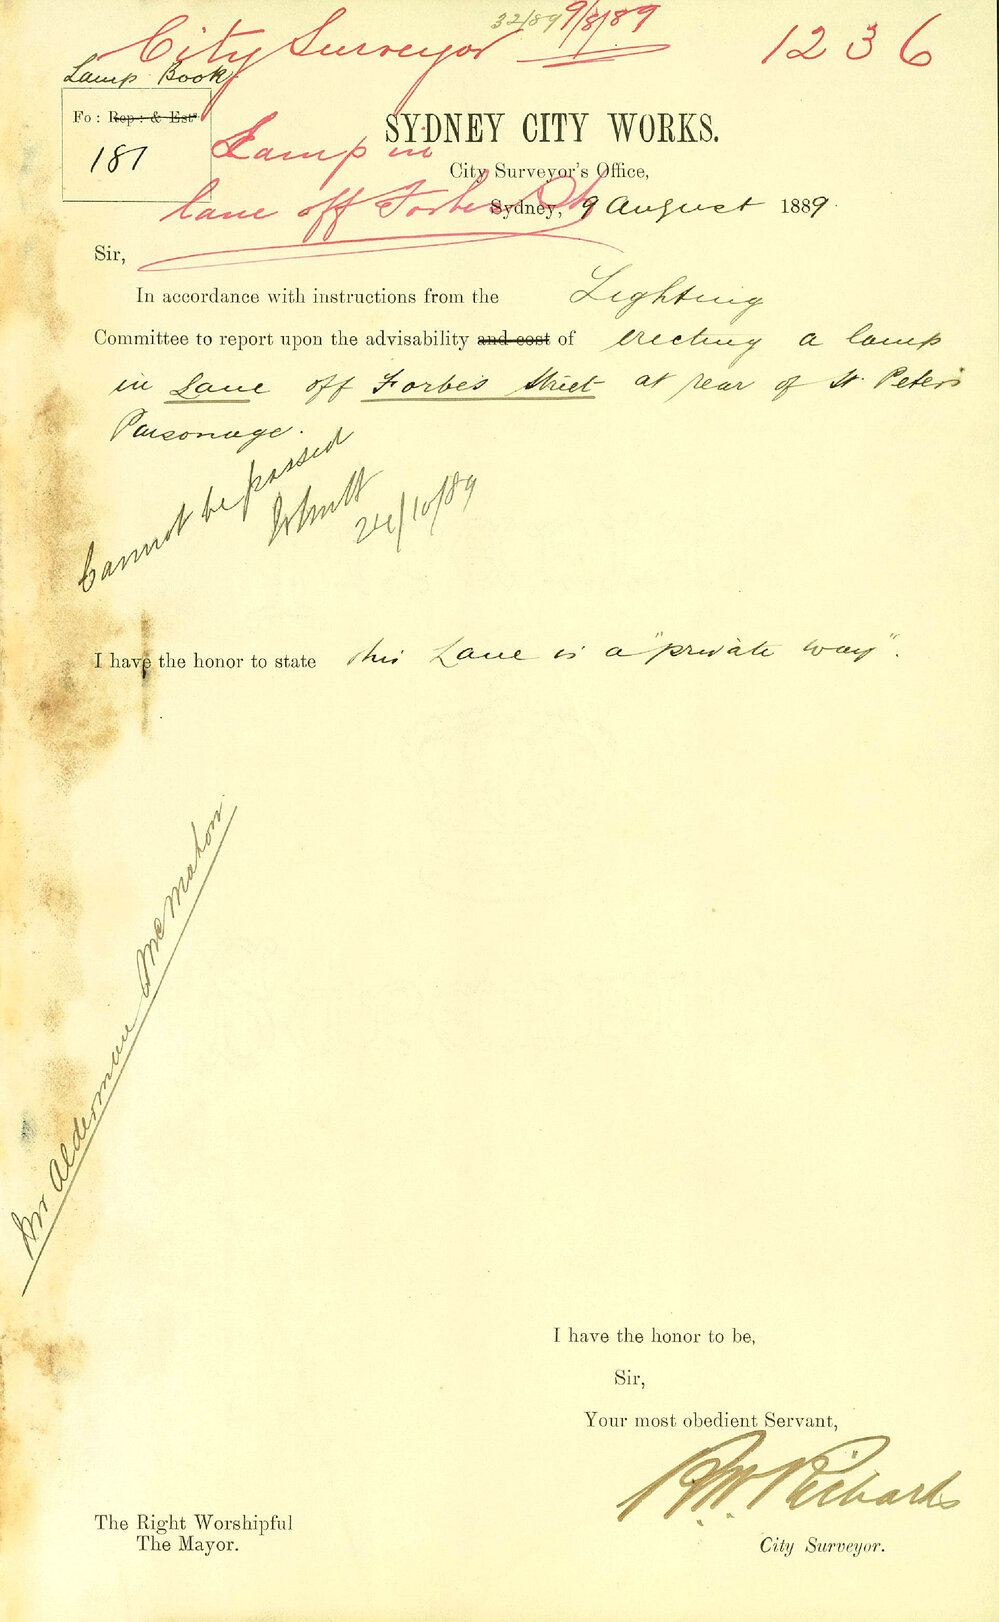 32/89 9/8/89
City Surveyor
1236
Lamp Book
Fo: Rep: & Est
181
Lamp in
lane off Forbes St
SYDNEY CITY WORKS.
City Surveyor's Office,
Sydney, 9 August 1889.
Sir,
In accordance with instructions from the Lighting
Committee to report upon the advisability and cost of erecting a lamp
in Lane off Forbes Street at rear of St. Peters
Parsonage.
Cannot be passed
24/10/89
I have the honor to state this Lane is a "private way".
Mr Alderman McMahon
I have the honor to be,
Sir,
Your most obedient Servant,
R W Richards
City Surveyor.
The Right Worshipful
The Mayor.